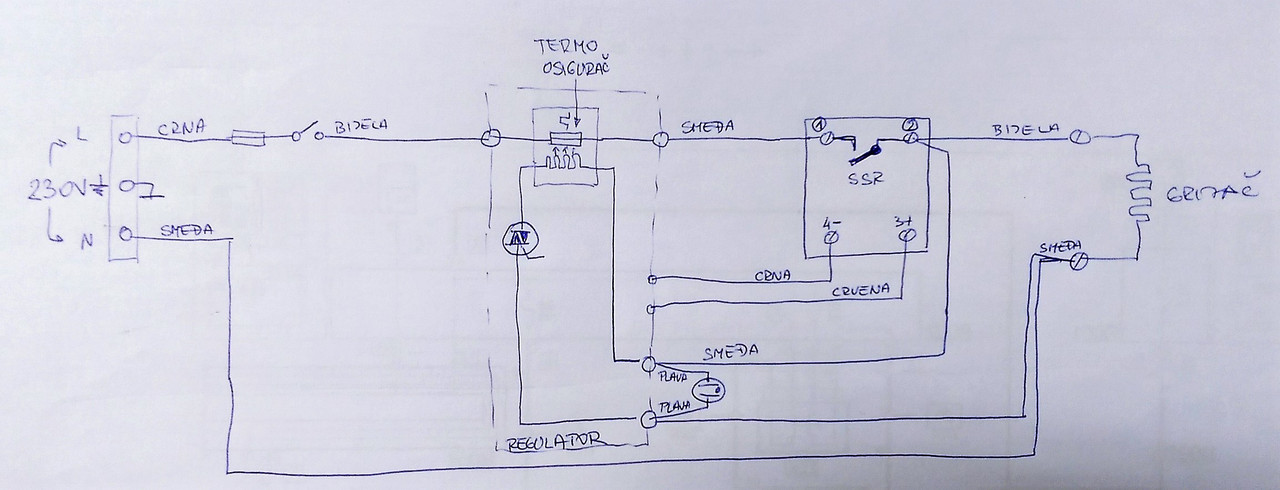 TERMO
OSIGURAČ
L
CRNA
BIJELA
SMEĐA
1
2
BIJELA
230V
SSR
GRIJAČ
N
SMEĐA
4-
3+
SMEĐA
CRNA
CRVENA
SMEĐA
PLAVA
PLAVA
REGULATOR